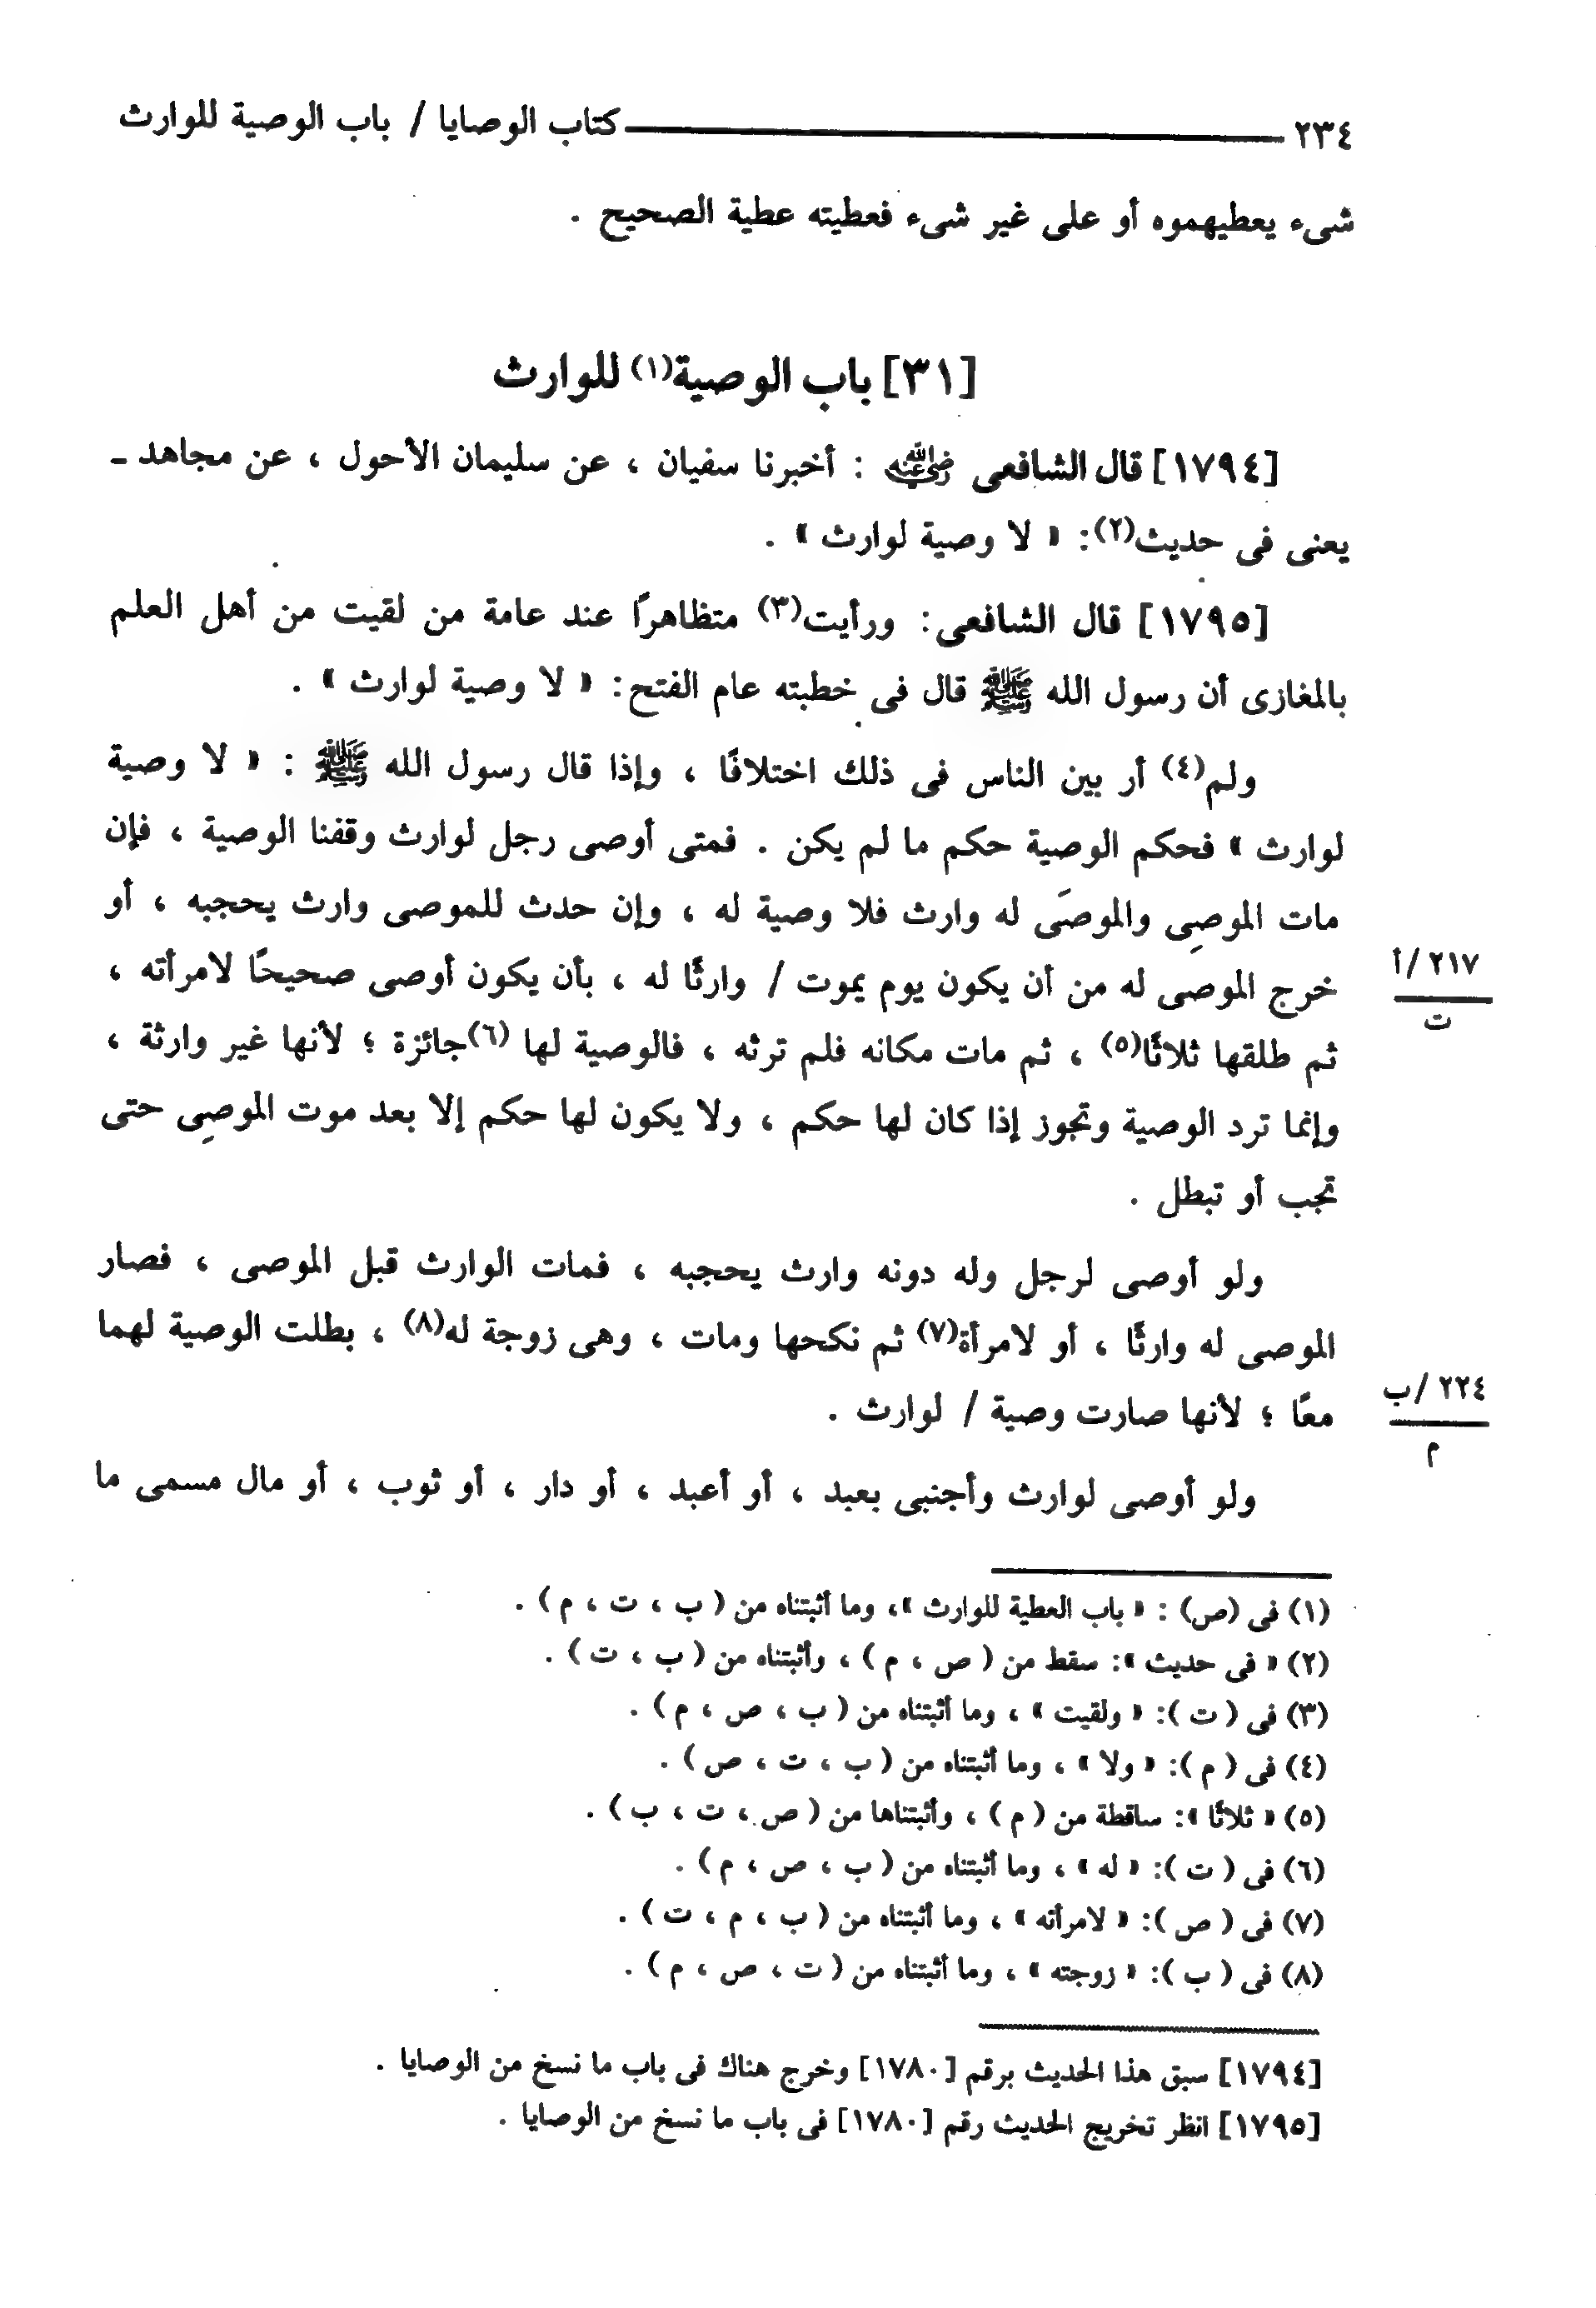 ٢٣٤ كتاب الوصايا / باب الوصية للوارث
شىء يعطيهموه أو على غير شىء فعطيته عطية الصحيح .
[٣١] باب الوصية(١) للوارث
[١٧٩٤] قال الشافعى رضي الله عنه : أخبرنا سفيان ، عن سليمان الأحول ، عن مجاهد ـ
يعنى فى حديث(٢): « لا وصية لوارث » .
[١٧٩٥] قال الشافعى: ورأيت(٣) متظاهرًا عند عامة من لقيت من أهل العلم
بالمغازى أن رسول الله ﷺ قال فى خطبته عام الفتح: « لا وصية لوارث » .
ولم(٤) أر بين الناس فى ذلك اختلافًا ، وإذا قال رسول الله ﷺ : « لا وصية
لوارث » فحكم الوصية حكم ما لم يكن . فمتى أوصى رجل لوارث وقفنا الوصية ، فإن
مات الموصِى والموصَى له وارث فلا وصية له ، وإن حدث للموصى وارث يحجبه ، أو
خرج الموصى له من أن يكون يوم يموت / وارثًا له ، بأن يكون أوصى صحيحًا لامرأته ،
٢١٧ /أ
ت
ثم طلقها ثلاثًا(٥) ، ثم مات مكانه فلم ترثه ، فالوصية لها (٦)جائزة ؛ لأنها غير وارثة ،
وإنما ترد الوصية وتجوز إذا كان لها حكم ، ولا يكون لها حكم إلا بعد موت الموصِى حتى
تجب أو تبطل .
ولو أوصى لرجل وله دونه وارث يحجبه ، فمات الوارث قبل الموصى ، فصار
الموصى له وارثًا ، أو لامرأة(٧) ثم نكحها ومات ، وهى زوجة له(٨) ، بطلت الوصية لهما
معًا ؛ لأنها صارت وصية / لوارث .
٢٢٤ /ب
م
ولو أوصى لوارث وأجنبى بعبد ، أو أعبد ، أو دار ، أو ثوب ، أو مال مسمى ما
(١) فى (ص) : « باب العطية للوارث »، وما أثبتناه من ( ب ، ت ، م ) .
(٢) « فى حديث »: سقط من ( ص ، م ) ، وأثبتناه من ( ب ، ت ) .
(٣) فى ( ت ): « ولقيت » ، وما أثبتناه من ( ب ، ص ، م ) .
(٤) فى ( م ): « ولا » ، وما أثبتناه من ( ب ، ت ، ص ) .
(٥) « ثلاثًا »: ساقطة من ( م ) ، وأثبتناها من ( ص ، ت ، ب ) .
(٦) فى ( ت ): « له » ، وما أثبتناه من ( ب ، ص ، م ) .
(٧) فى ( ص ): « لامرأته » ، وما أثبتناه من ( ب ، م ، ت ) .
(٨) فى ( ب ): « زوجته » ، وما أثبتناه من ( ت ، ص ، م ) .
[١٧٩٤] سبق هذا الحديث برقم [١٧٨٠] وخرج هناك فى باب ما نسخ من الوصايا .
[١٧٩٥] انظر تخريج الحديث رقم [١٧٨٠] فى باب ما نسخ من الوصايا .